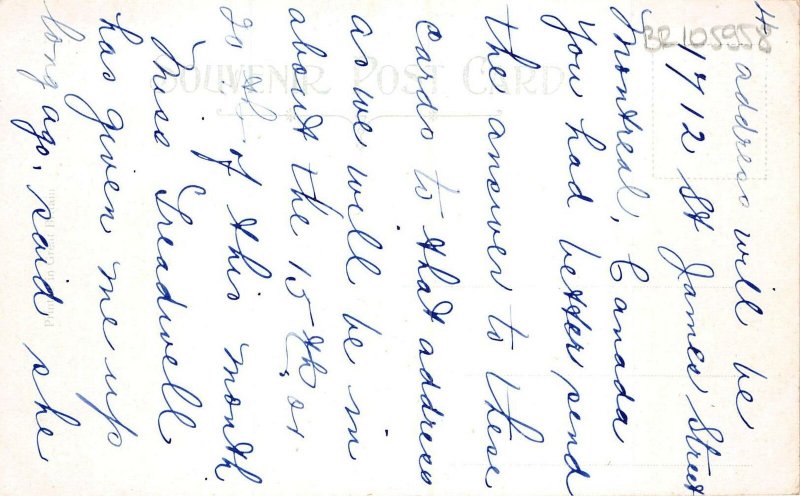 4 address will be
1712 St James Street
Montreal, Canada
You had better send
the answer to these
cards to that address
as we will be in
about the 15th, or
20th of this month
Miss Treadwell
has given me up
long ago, said she
SOUVENIR POST CARD
BR105958